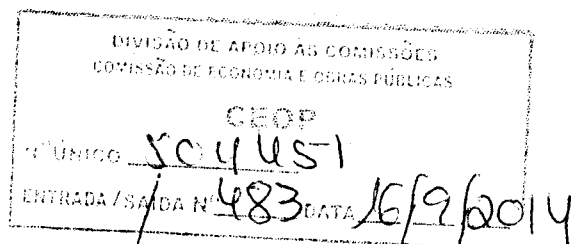 DIVISÃO DE APOIO ÀS COMISSÕES
COMISSÃO DE ECONOMIA E OBRAS PÚBLICAS
CEOP
Nº ÚNICO 504451
ENTRADA/SAÍDA Nº 483 DATA 16/9/2014